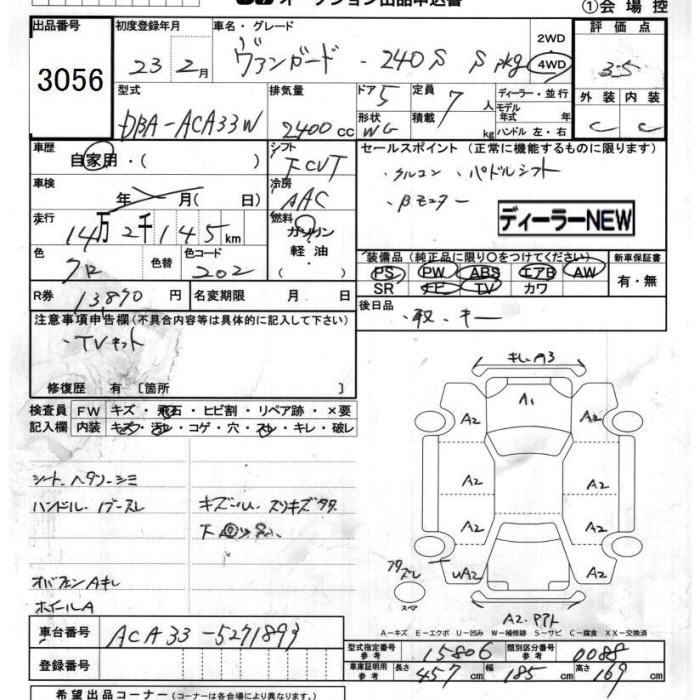 オークション出品申込書
①会場控
出品番号 3056
初度登録年月 23年 2月
車名・グレード ヴァンガード・240S S pkg
2WD
4WD
評価点 3.5
外装 内装
C C
型式 DBA-ACA33W
排気量 2400cc
ドア 5
形状 WG
定員 7人
積載 kg
ディーラー・並行
モデル年式 年
ハンドル 左・右
車歴 自家用・( )
シフト FCVT
セールスポイント(正常に機能するものに限ります)
・クルコン ・パドルシフト
・Bモニター
ディーラーNEW
車検 年 月(日)
冷房 AAC
走行 14万2千145km
燃料 ガソリン
軽油
色 クロ
色替
色コード 202
装備品(純正品に限り〇をつけてください)
PS PW ABS エアB AW
SR ナビ TV カワ
新車保証書
有・無
R券 13870円
名変期限 月 日
後日品
・取、キー
注意事項申告欄(不具合内容等は具体的に記入して下さい)
・TVキット
修復歴 有〔箇所 〕
検査員 FW キズ・飛石・ヒビ割・リペア跡・×要
記入欄 内装 キズ・汚レ・コゲ・穴・スレ・キレ・破レ
シート ヘタリ・シミ
ハンドル
キズ スリキズ
下回り
オバフェンAキレ
ホイールA
キレ・A3
A1
A2 A2
A2 A2
A2 A2
WA2 A2
スペア
A2・
A-キズ E-エクボ U-凹み W-補修跡 S-サビ C-腐食 XX-交換済
車台番号 ACA33-5271899
登録番号
型式指定番号 参考 15806
類別区分番号 参考 0088
車庫証明用 参考 長さ 457cm 幅 185cm 高さ 169cm
希望出品コーナー(コーナーは各会場により異なります。)